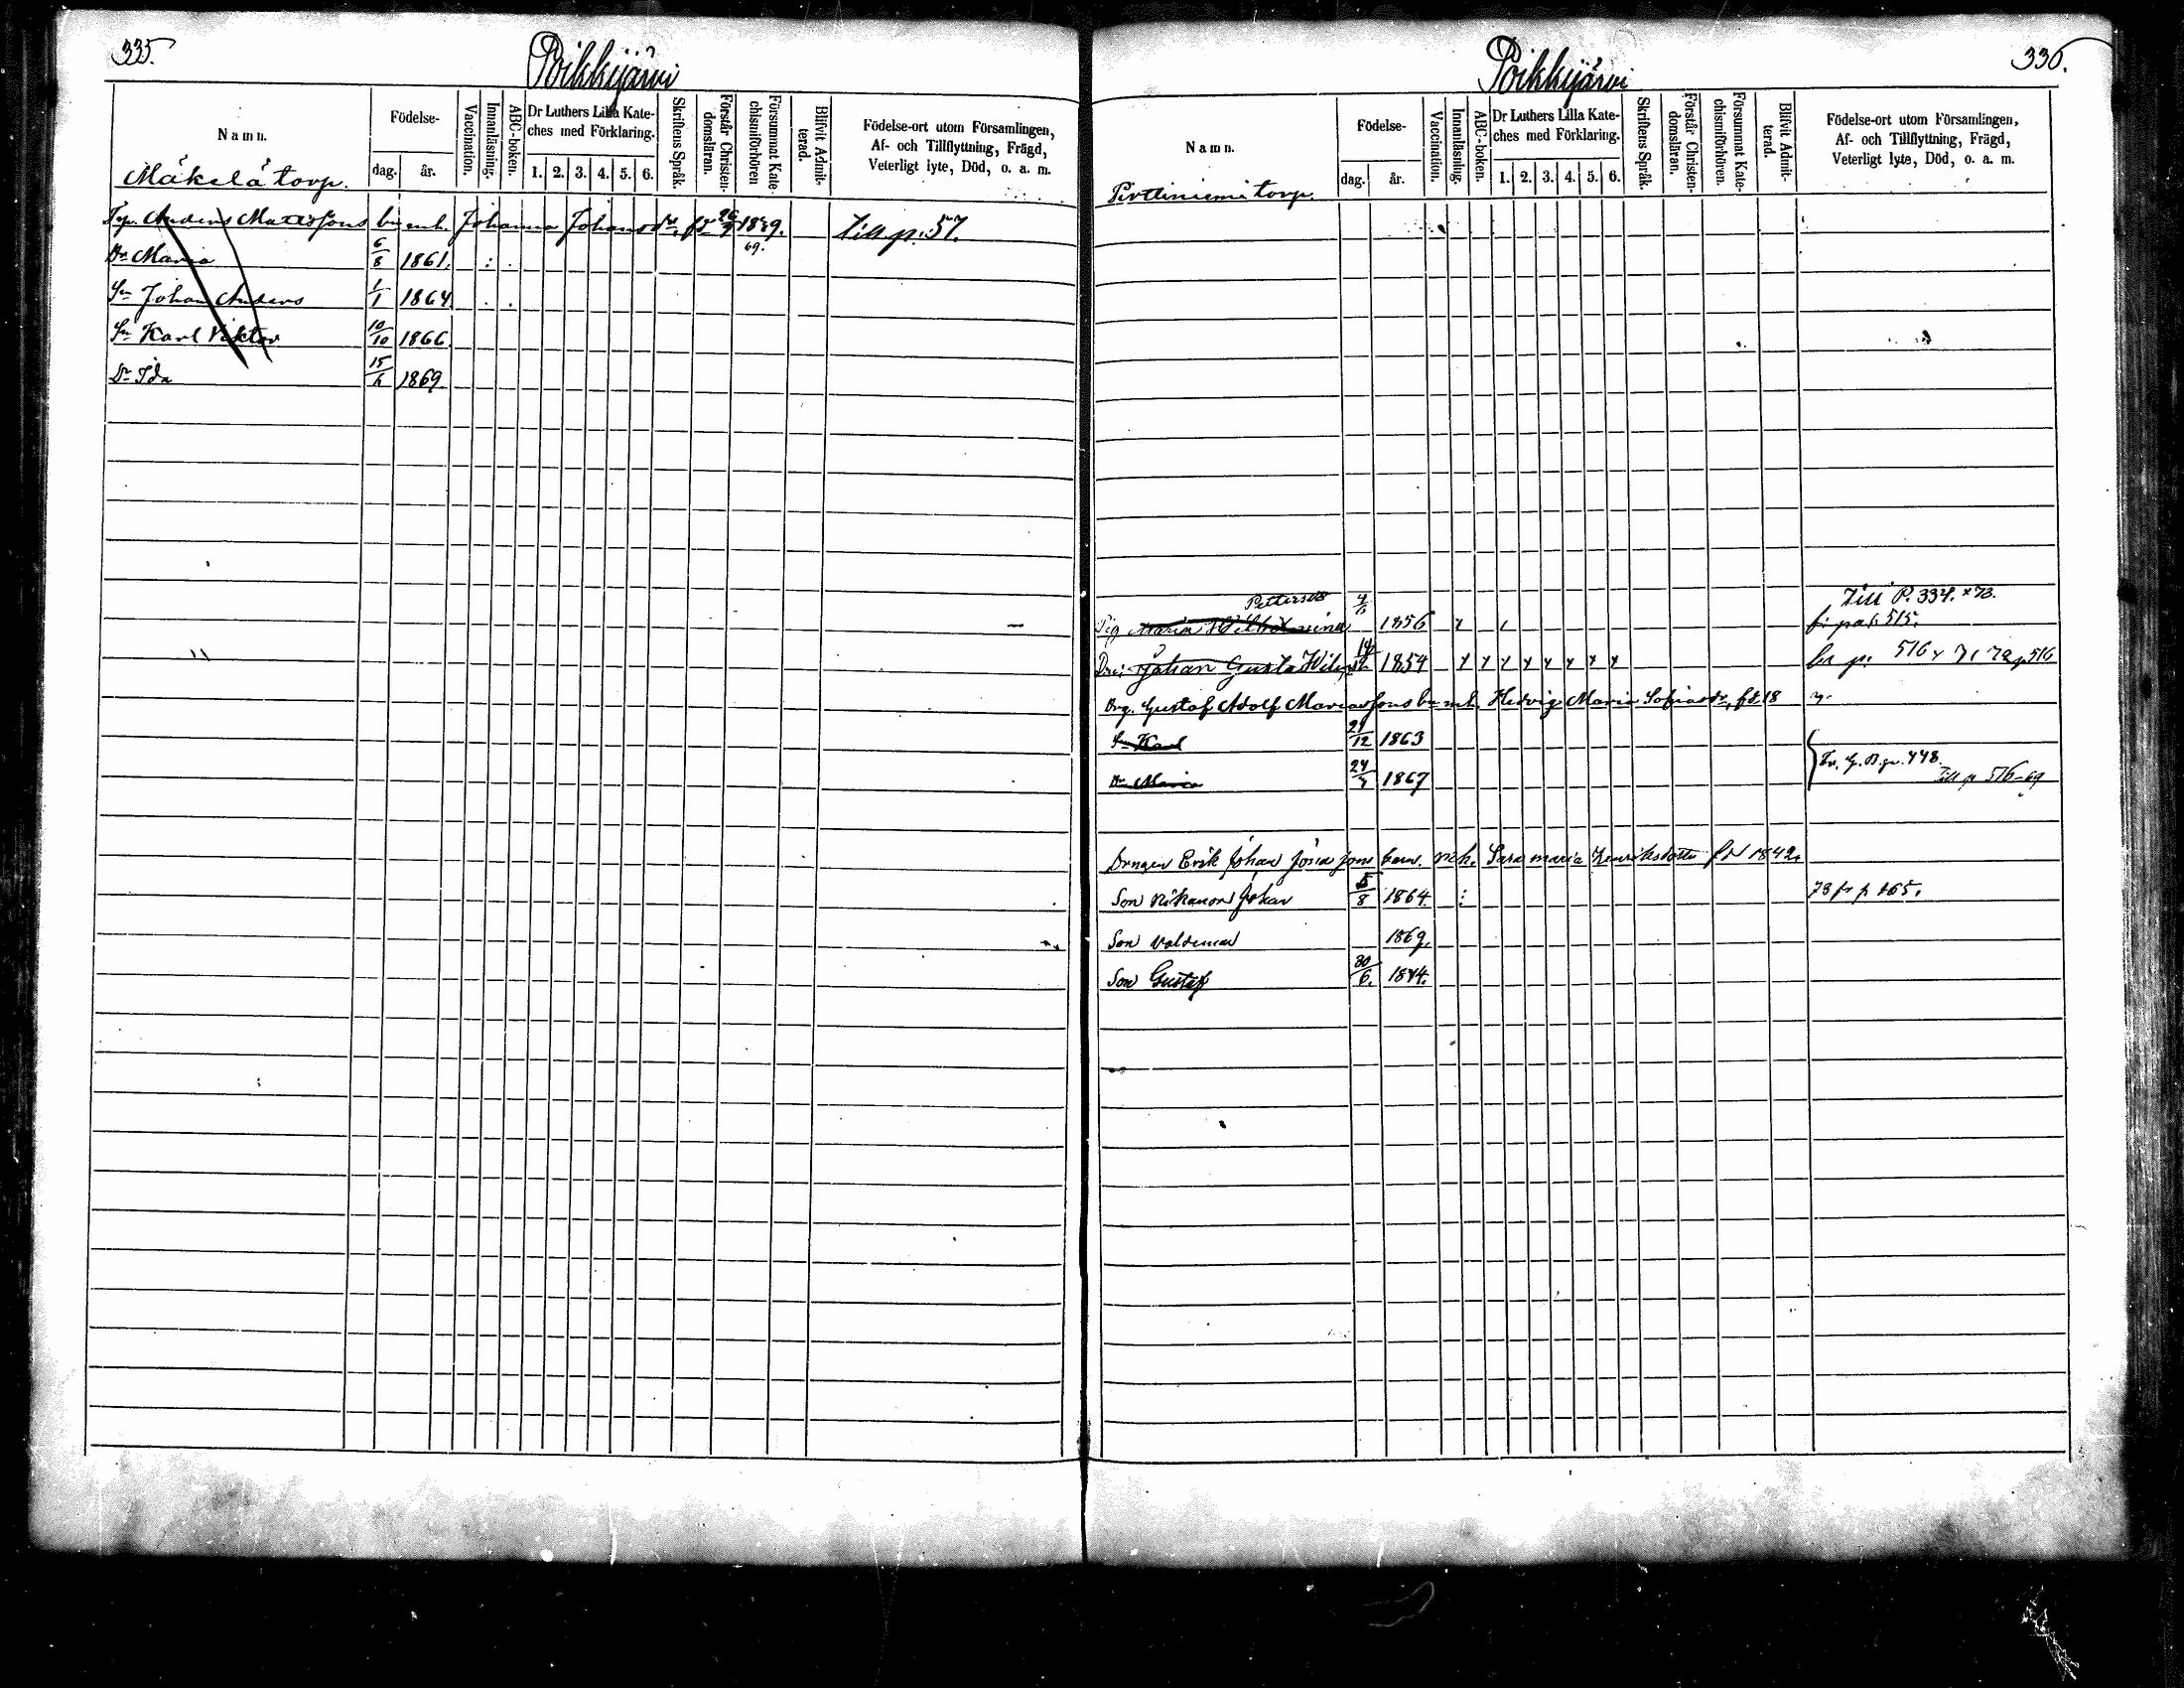 335.
Poikkijärvi
Namn.
Födelse-
dag.
år.
Vaccination.
Innanläsning.
ABC-boken.
Dr Luthers Lilla Kate-
ches med Förklaring.
1. 2. 3. 4. 5. 6.
Skriftens Språk.
Förstår Christen-
domsläran.
Försummat Kate-
chismiförhören
Blifvit Admit-
terad.
Födelse-ort utom Församlingen,
Af- och Tillflyttning, Frägd,
Veterligt lyte, Död, o. a. m.
Mäkelä torp.
Anders Mattssons bn m. h. Johanna Johansdr, fd 1829. Till p. 57.
69.
Dr Maria 6/8 1861.
Sn Johan Anders 1/1 1864.
Sn Karl Viktor 10/10 1866.
Dr Ida 15/6 1869
336.
Poikkijärvi
Namn.
Födelse-
dag.
år.
Vaccination.
Innanläsning.
ABC-boken.
Dr Luthers Lilla Kate-
ches med Förklaring.
1. 2. 3. 4. 5. 6.
Skriftens Språk.
Förstår Christen-
domsläran.
Försummat Kate-
chismiförhören.
Blifvit Admit-
terad.
Födelse-ort utom Församlingen,
Af- och Tillflyttning, Frägd,
Veterligt lyte, Död, o. a. m.
torp.
Till P. 334. 73.
Pig Maria Wilhelmina 1856 515.
Johan Gusta 1854 516
Drg. Gustaf Adolf bn m. h. Hedvig Maria Sofiasdr, fd. 18
Sn Karl 29/12 1863
Dr Maria 1867 448. Till p 516-69
Drngen Erik Johan barn. m.h. Sara maria Henriksdotter fd 1842.
Son Nikanor Johan 5/8 1864. 73 fr p 165.
Son Valdemar 1869.
Son Gustaf 30/6. 1874.